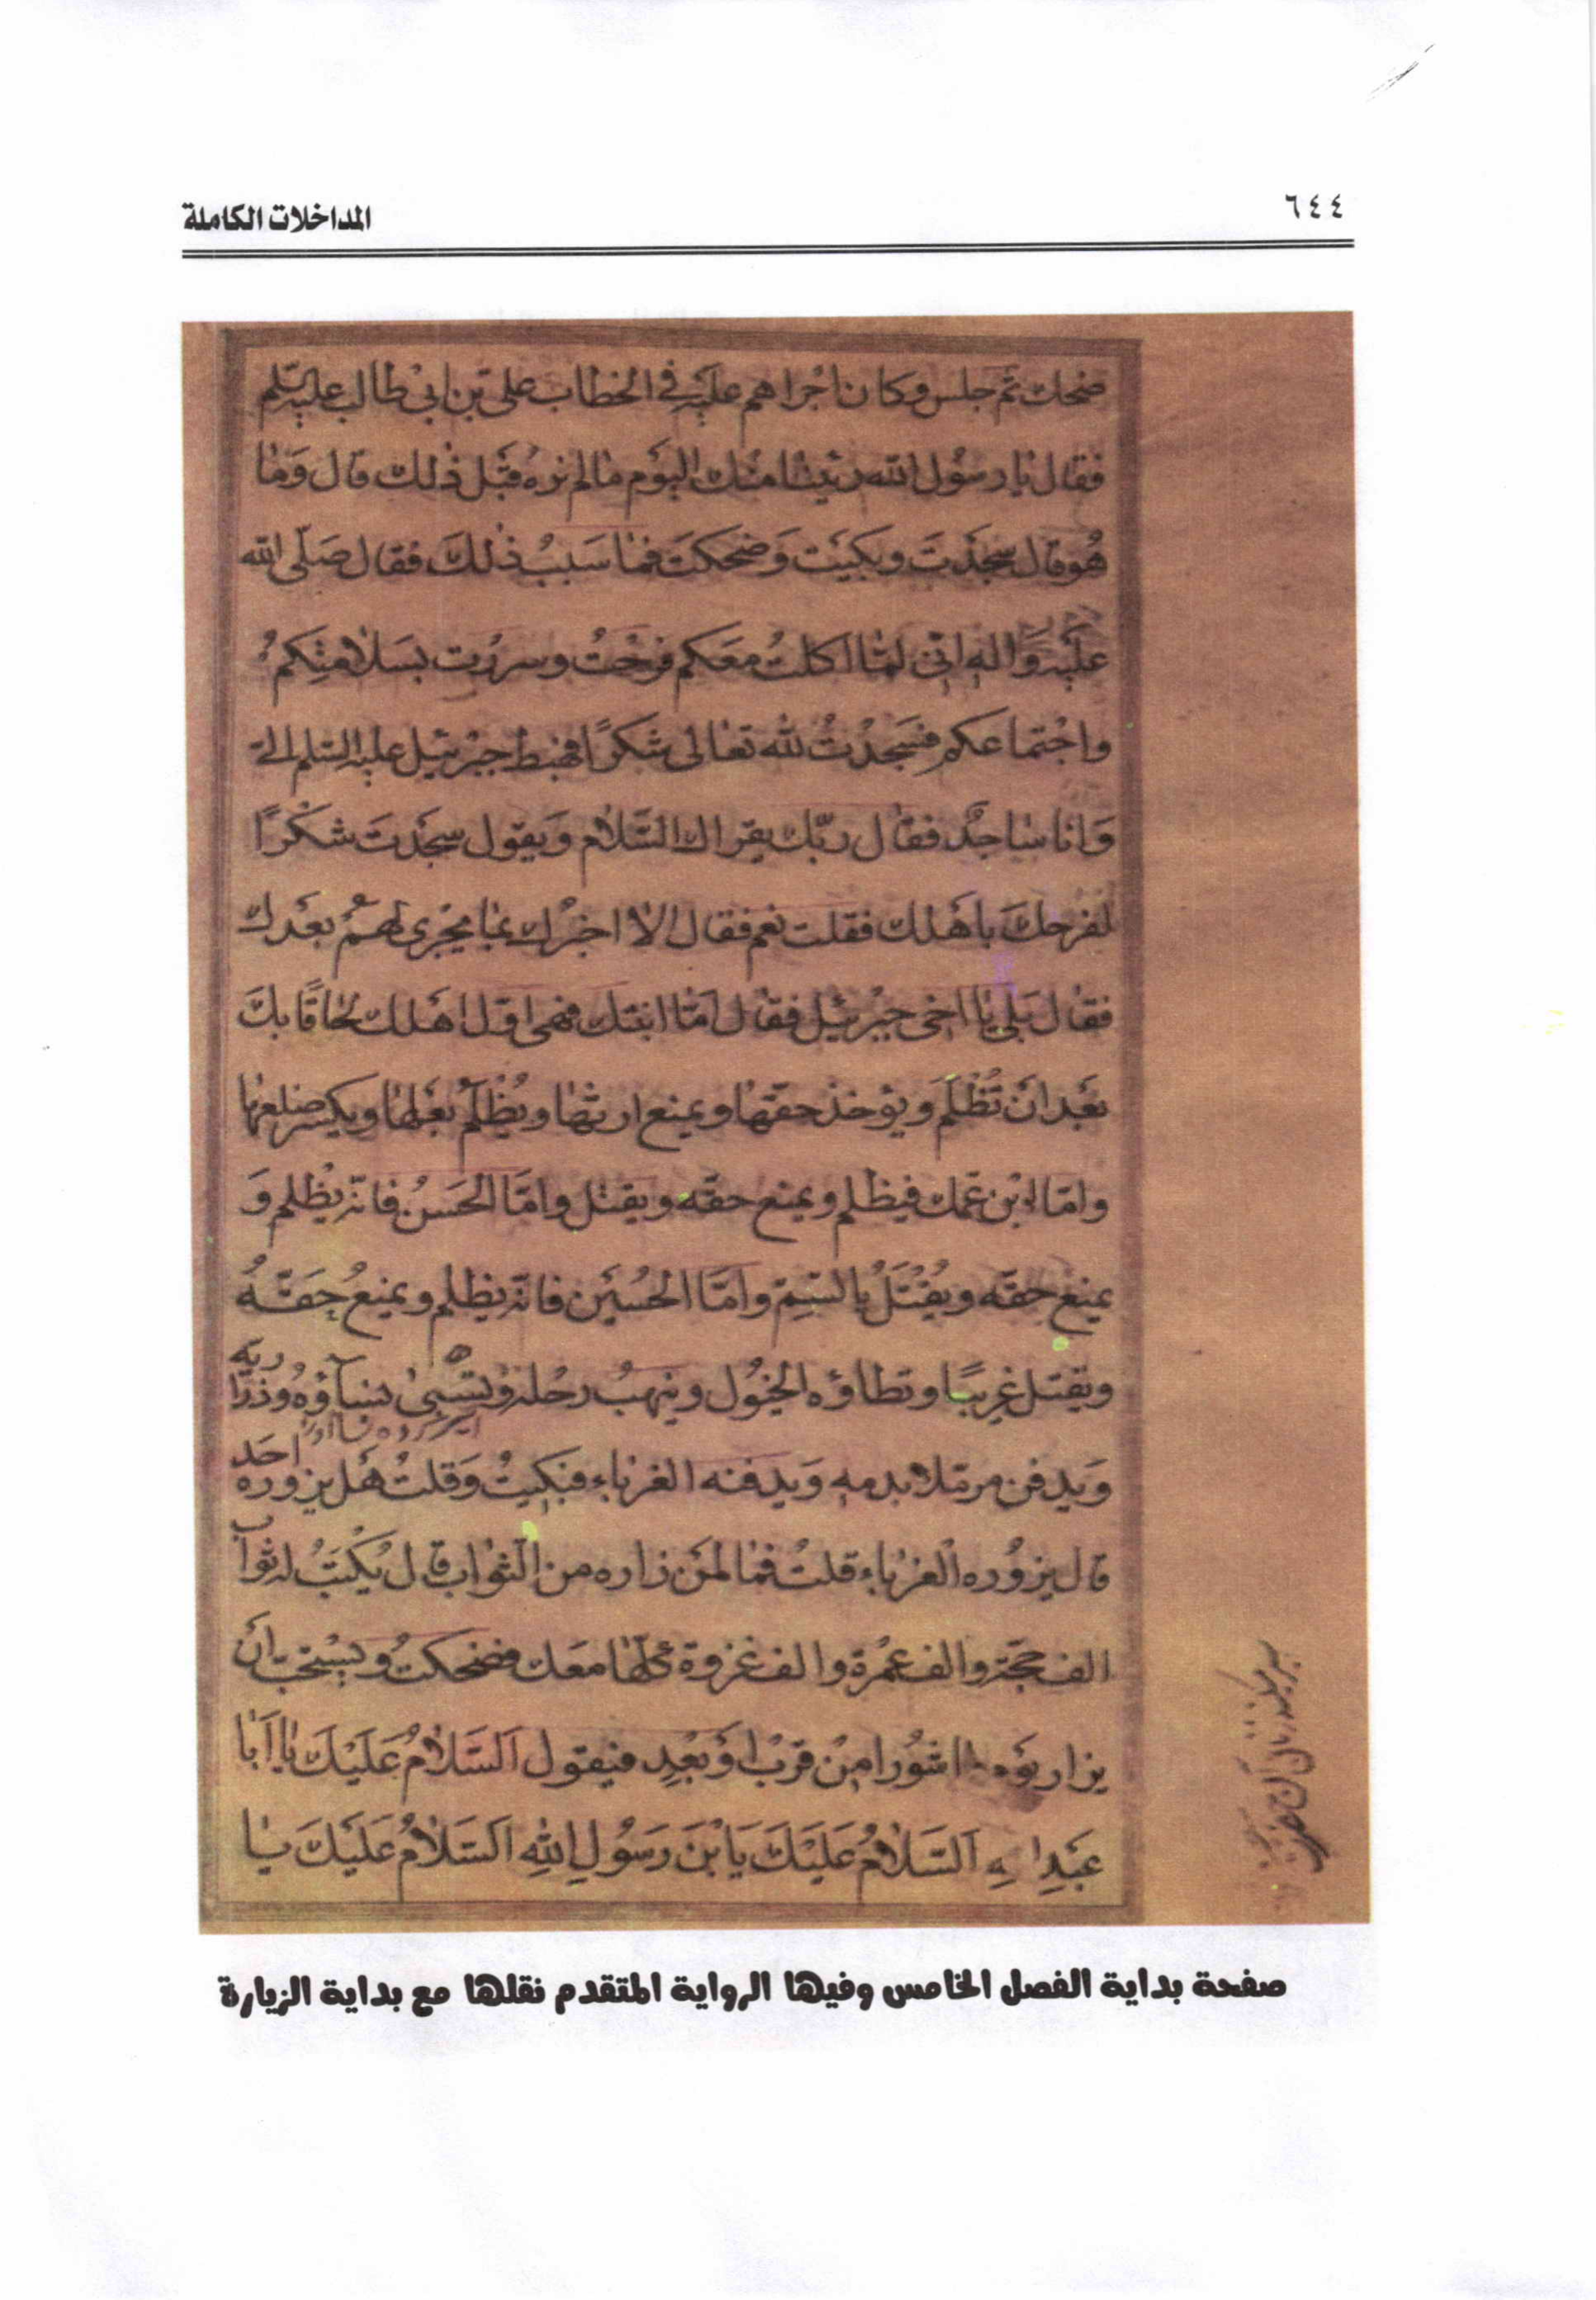 المداخلات الكاملة
٦٤٤
ضحك ثم جلس وكان اجراهم عليه في الخطاب علي بن ابي طالب عليه السلم
فقال يا رسول الله رئينا منك اليوم ما لم نره قبل ذلك قال وَما
هُو قال سجدتَ وبكيت وَضحكتَ فما سَببُ ذلكَ فقال صَلّى الله
عليه وَاله انّي لمّا اكلتُ معَكم فرحْتُ وسررت بسَلامتِكم
واجْتماعكم فسَجدْتُ لله تعالى شكرًا فهبط جبرئيل عليه السلم اليّ
وَانا ساجدٌ فقال ربّك يقراك السَّلام وَيقول سجدتَ شكرًا
لفرحكَ باهلك فقلت نعم فقال الا اخبرك بما يجرى لهمُ بعدك
فقال بَلى يا اخى جبرئيل فقال امّا ابنتك فهى اوّل اهلك لحاقًا بكَ
بعَد انْ تُظْلَمَ ويؤخذ حقّها ويمنع ارثها ويُظْلَمُ بعَلها ويكسر ضلعها
وامّا ابْن عمّك فيظلم ويمنع حقّه ويقتل وامَّا الحَسَنُ فانّه يظلم وَ
يمنع حقّه ويُقْتَلُ بالسّمِّ وامّا الحُسيْن فانّه يظلم ويمنعُ حَقّهُ
ويقتل غريبًا وتطاؤه الخيُول وينهبُ رحْله وتسْبىٰ نساؤهُ وذرّاريّه
وَيدفن مرمّلا بدمه وَيدفنه الغرباء فبكيتُ وَقلتُ هَل يزوره احَد
قال يزوُره الغرباء قلتُ فما لمَن زاره من الثواب قال يُكْتَبُ له ثواب
الف حجّة والف عمْرة والف غزوة كلّها معَك فضحكتُ ويسْتحبّ ان
يزار يوْم عاشوُرا مِنْ قرْب اوْ بعُدٍ فيَقول اَلسَّلامُ عَلَيْكَ يا اَبا
عَبْدِ اللهِ اَلسَّلامُ عَلَيْكَ يَابْنَ رَسُولِ اللهِ اَلسَّلامُ عَلَيْكَ يا
صفحة بداية الفصل الخامس وفيها الرواية المتقدم نقلها مع بداية الزيارة